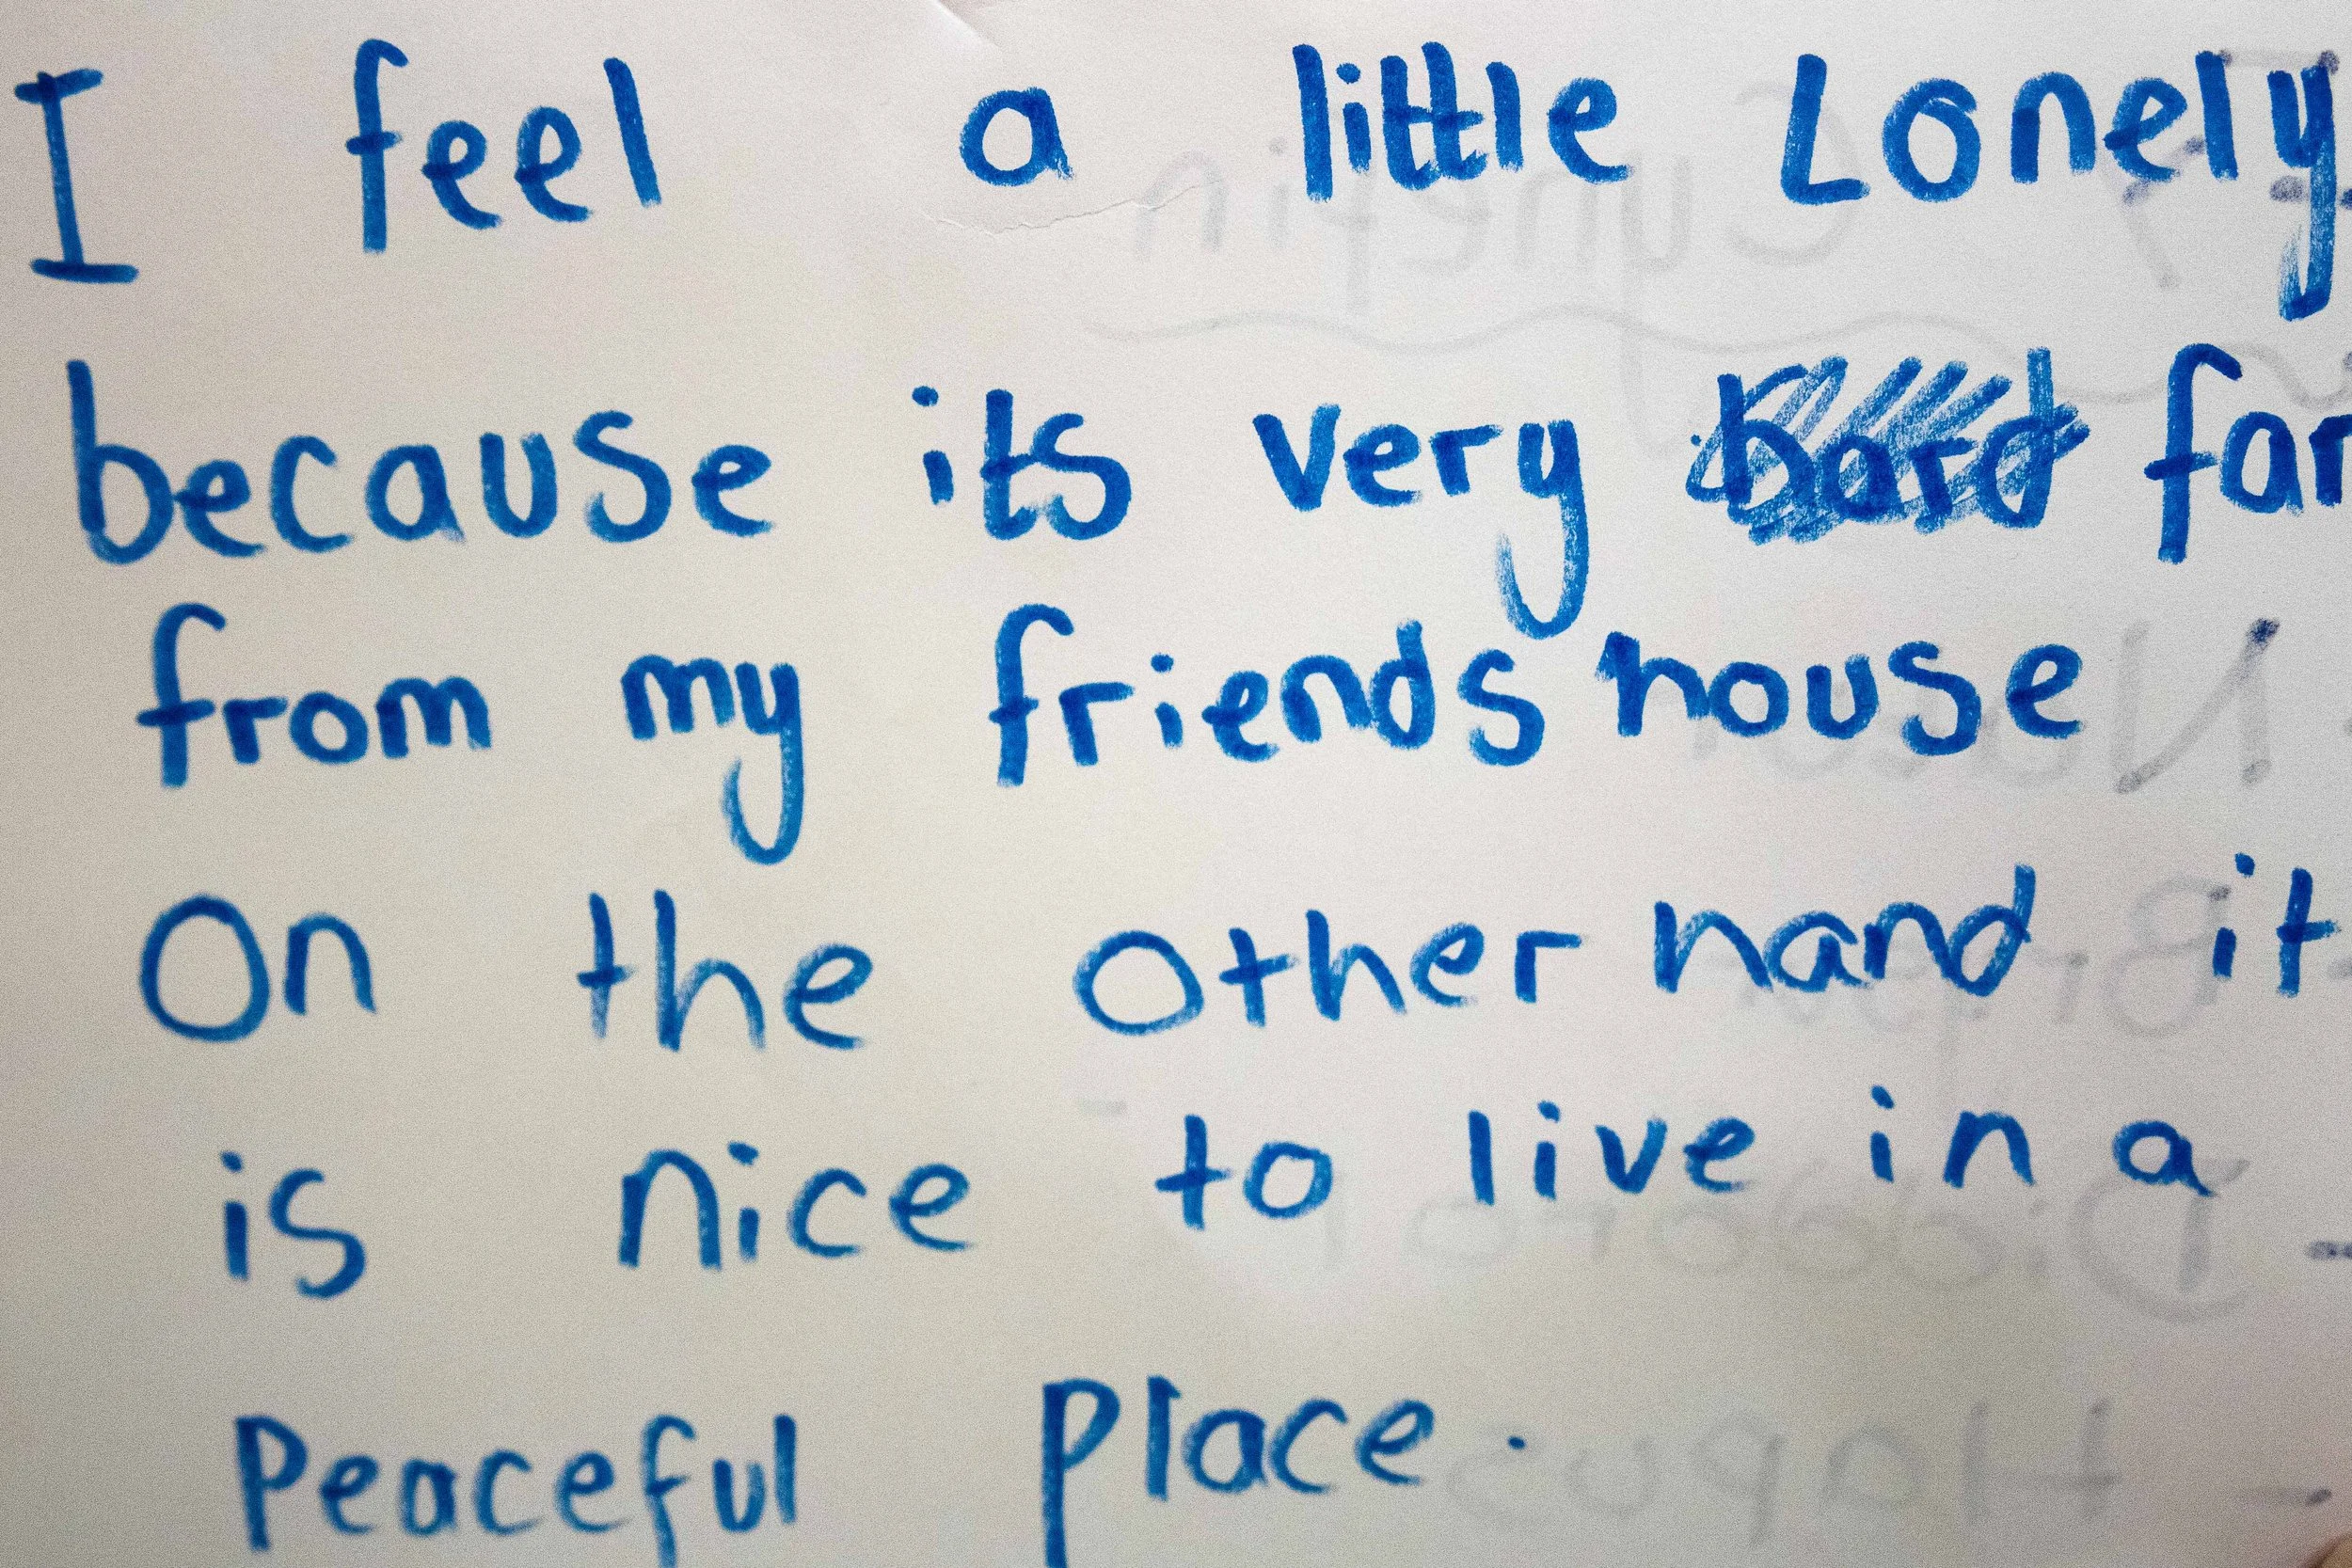 I feel a little Lonely
because its very far
from my friends house
On the other hand it
is nice to live in a
Peaceful place.